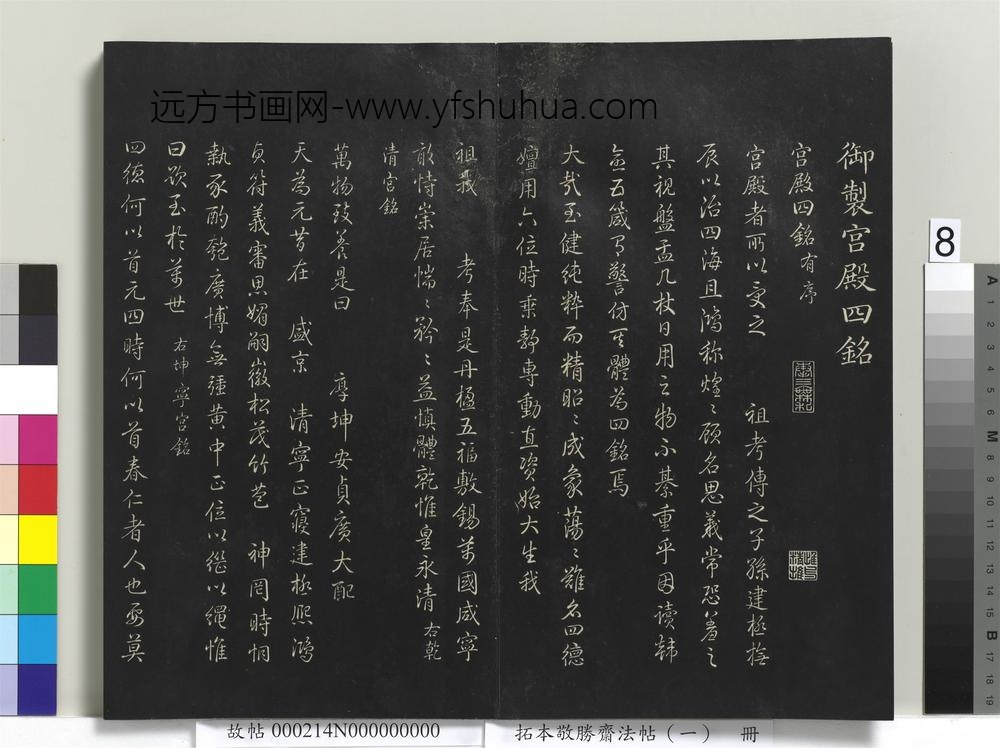 远方书画网-www.yfshuhua.com
御製宮殿四銘
宮殿四銘有序
宮殿者所以受之 祖考傳之子孫建極撫
辰以治四海且鴻称煌〻顧名思義常恐羞之
其視盤盂几杖日用之物不綦重乎因讀韩
愈五箴有警仿其體為四銘焉
大哉至健純粹而精昭〻成象蕩〻難名四德
嬗用六位時乗静專動直資始大生我
祖我 考奉是丹楹五福敷錫萬國咸寧
敢恃崇居惴〻矜〻益慎體乾惟皇永清 右乾
清宮銘
萬物致養是曰 厚坤安貞廣大配
天為元昔在 盛京 清寧正寢建極熙鴻
貞符義審思媚嗣徽松茂竹苞 神罔時恫
執豕酌匏廣博無疆黄中正位以繼以繩惟
曰欽至於萬世 右坤寧宮銘
四德何以首元四時何以首春仁者人也要莫
8
A 1 2 3 4 5 6 M 8 9 10 11 12 13 14 15 B 17 18 19
故帖 000214N000000000
拓本敬勝齋法帖（一） 冊